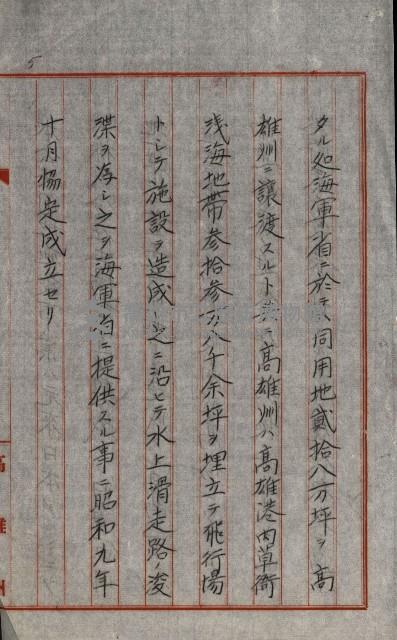 タル処海軍省ニ於テハ同用地貳拾八万坪ヲ高
雄州ニ讓渡スルト共ニ高雄州ハ高雄港内草衙
浅海地帯参拾参万八千余坪ヲ埋立テ飛行場
トシテ施設ヲ造成シ之ニ沿ヒテ水上滑走路ノ浚
渫ヲ為シ之ヲ海軍省ニ提供スル事ニ昭和九年
十月協定成立セリ
高雄州